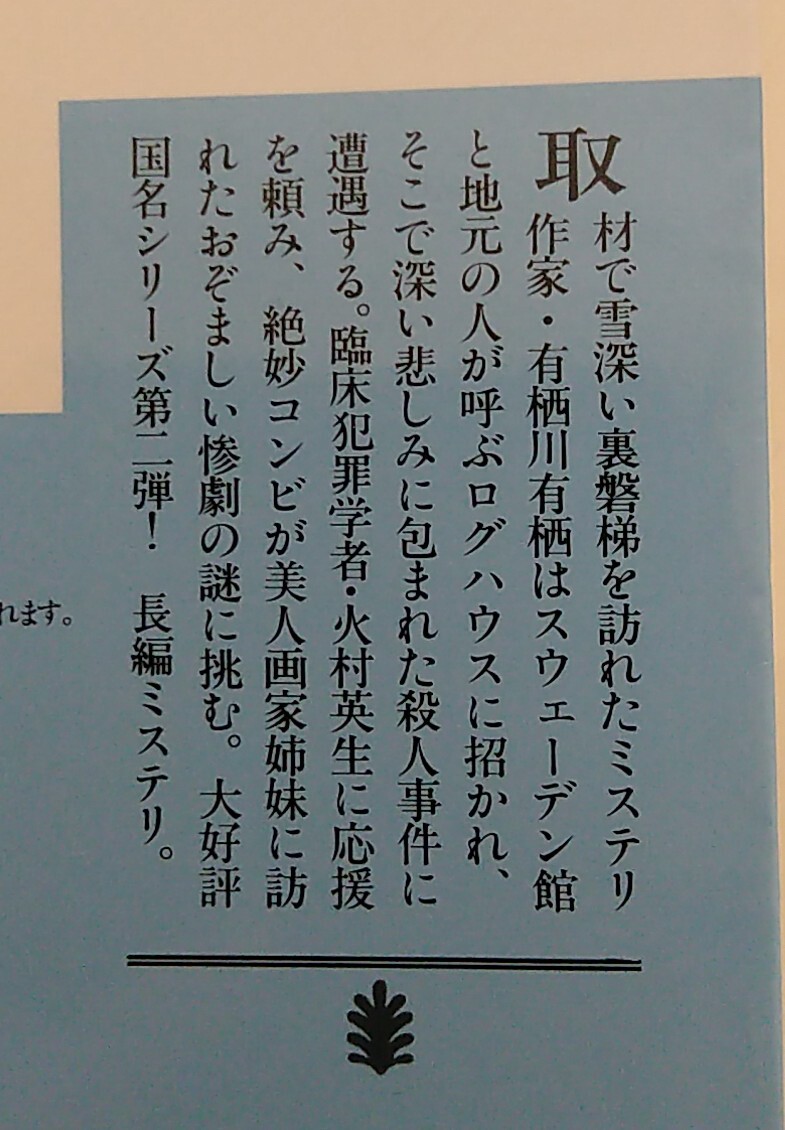 取材で雪深い裏磐梯を訪れたミステリ
作家・有栖川有栖はスウェーデン館
と地元の人が呼ぶログハウスに招かれ、
そこで深い悲しみに包まれた殺人事件に
遭遇する。臨床犯罪学者・火村英生に応援
を頼み、絶妙コンビが美人画家姉妹に訪
れたおぞましい惨劇の謎に挑む。大好評
国名シリーズ第二弾！　長編ミステリ。
れます。